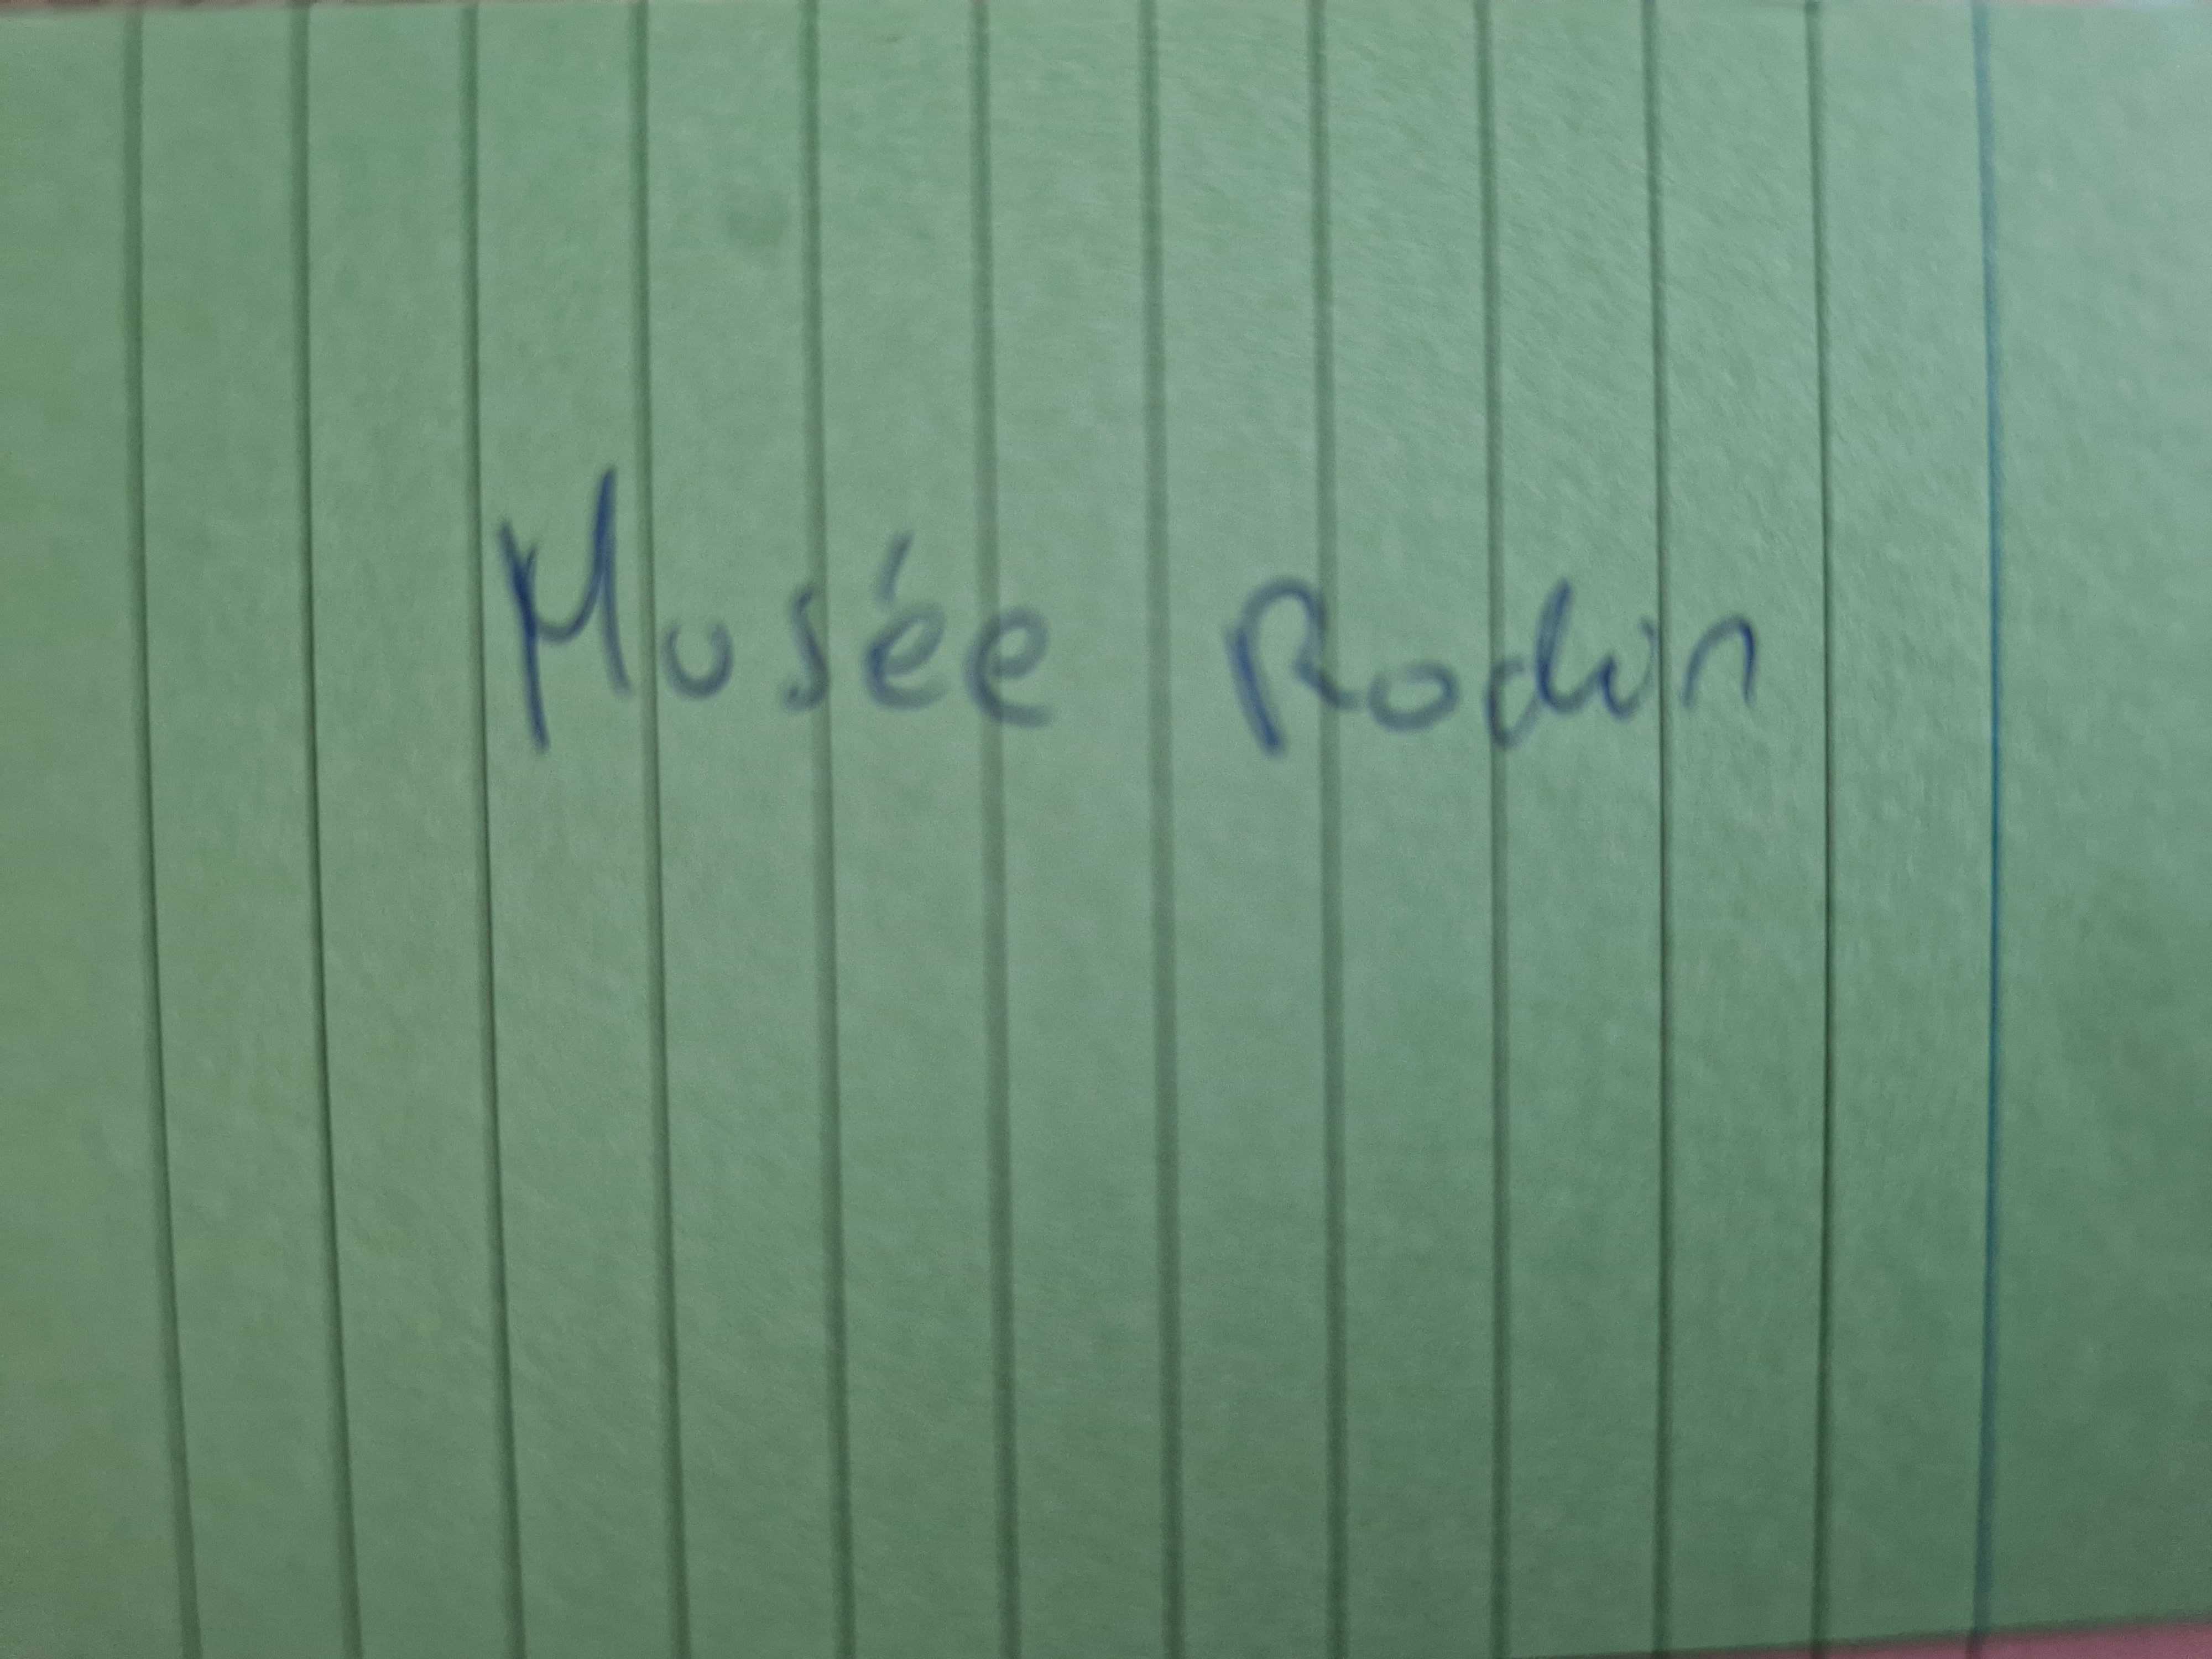 Musée Rodin